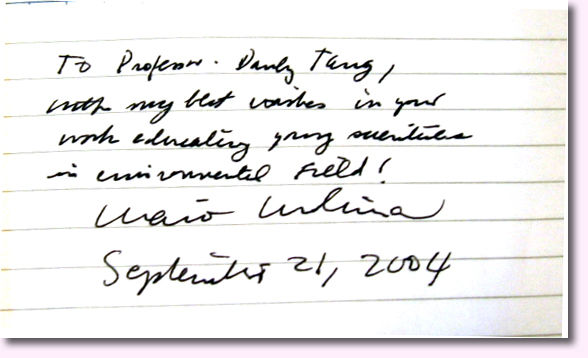 To Professor. Danly Tang,
with my best wishes in your
work educating young scientists
in environmental field!
Mario Molina
September 21, 2004